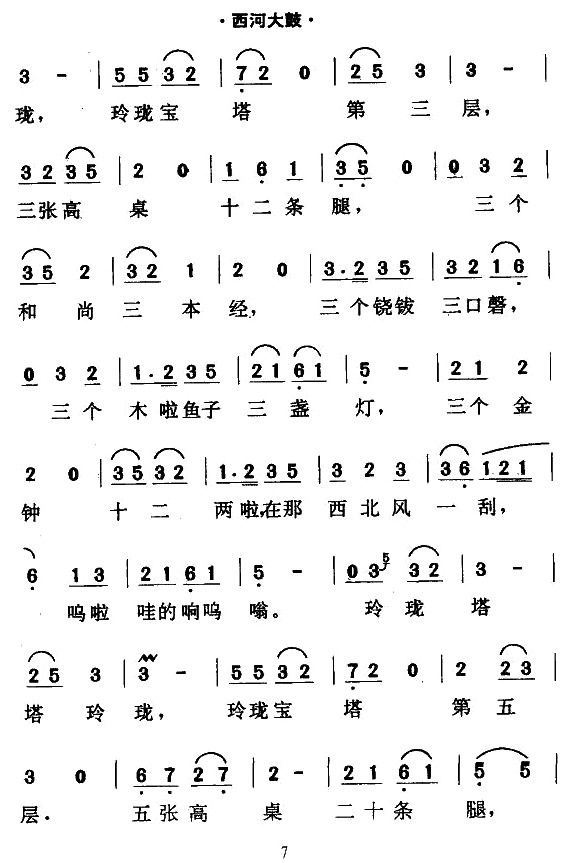 ·西河大鼓·
3 - | 5 5 3 2 | 7 2 0 | 2 5 3 | 3 - |
珑， 玲珑宝 塔 第 三 层，
3 2 3 5 | 2 0 | 1 6 1 | 3 5 0 | 0 3 2 |
三张高 桌 十二条 腿， 三个
3 5 2 | 3 2 1 | 2 0 | 3·2 3 5 | 3 2 1 6 |
和 尚 三 本 经， 三个铙钹 三口磬，
0 3 2 | 1·2 3 5 | 2 1 6 1 | 5 - | 2 1 2 |
三个 木啦鱼子 三 盏 灯， 三个 金
2 0 | 3 5 3 2 | 1·2 3 5 | 3 2 3 | 3 6 1 2 1 |
钟 十二 两啦,在那 西北风 一 刮，
6 1 3 | 2 1 6 1 | 5 - | 0 3 5 3 2 | 3 - |
呜啦 哇的响呜 嗡。 玲 珑 塔
2 5 3 | 3 - | 5 5 3 2 | 7 2 0 | 2 2 3 |
塔 玲 珑， 玲珑宝 塔 第 五
3 0 | 6 7 2 7 | 2 - | 2 1 6 1 | 5 5 |
层． 五张高 桌 二十条 腿，
7